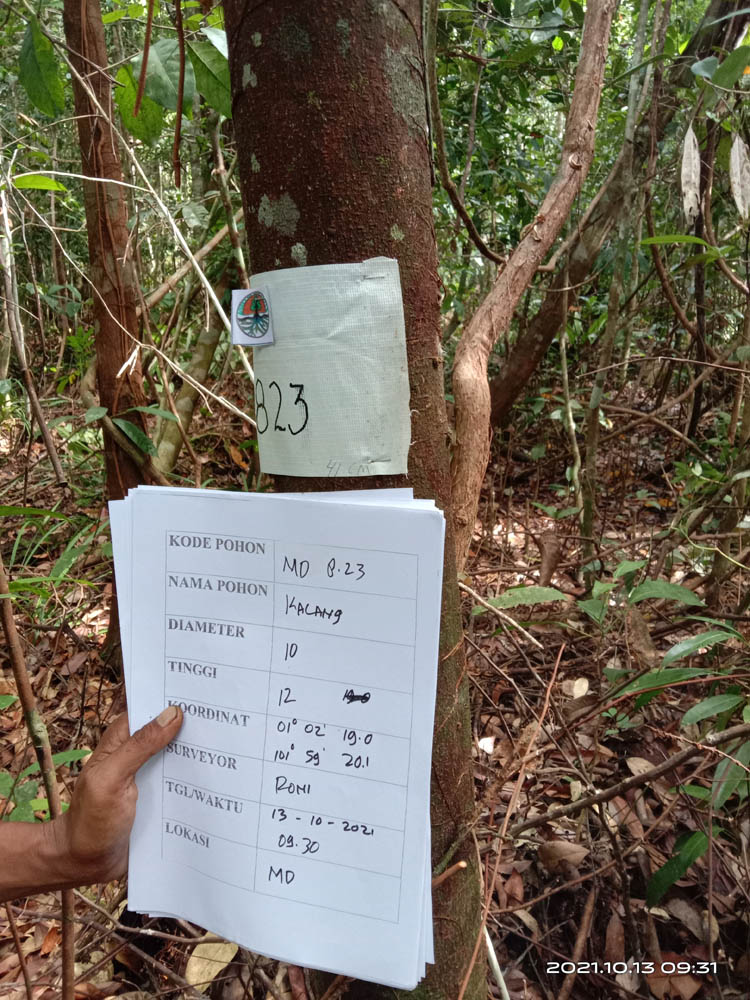 823
41 CM
KODE POHON MD 8.23
NAMA POHON KALANG
DIAMETER 10
TINGGI 12
KOORDINAT 01° 02' 19.0
101° 59' 20.1
SURVEYOR RONI
TGL/WAKTU 13-10-2021
09.30
LOKASI MD
2021.10.13 09:31